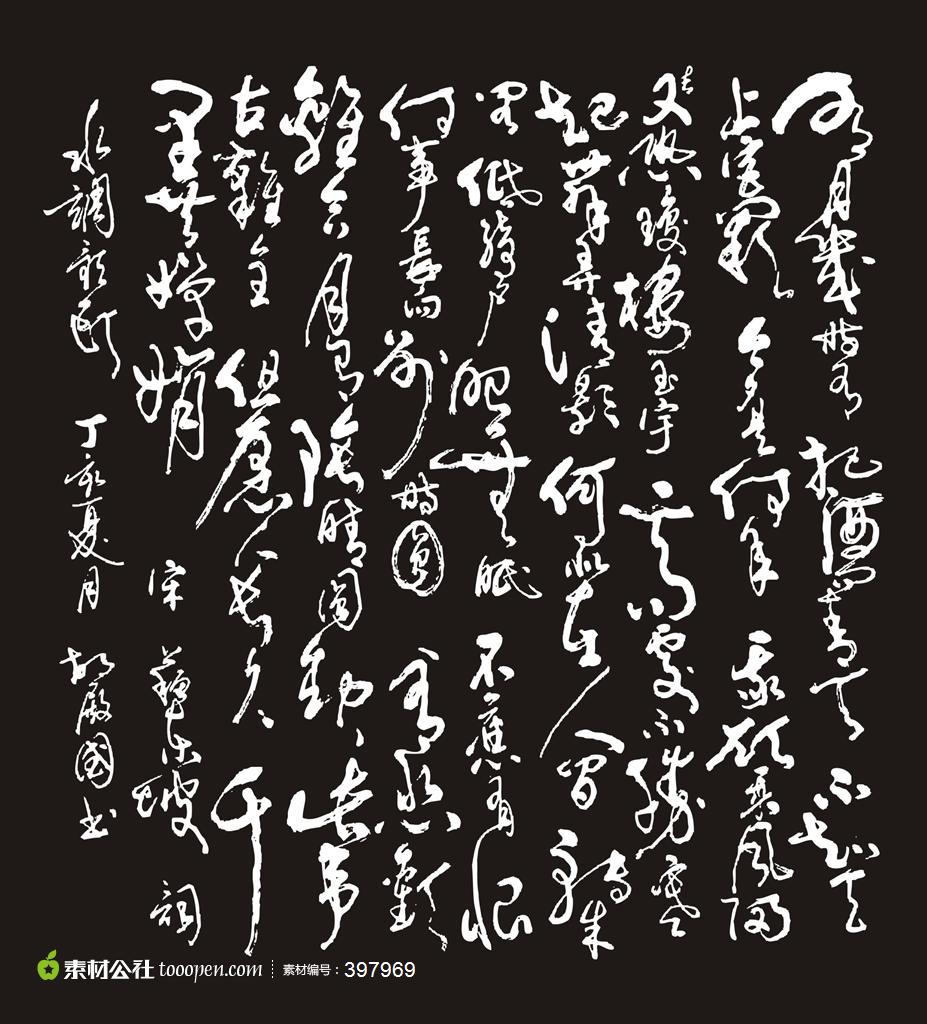 明月幾時有把酒問青天不知天
上宮闕今夕是何年我欲乘風歸
去又恐瓊樓玉宇高處不勝寒
起舞弄清影何似在人間轉朱
閣低綺戶照無眠不應有恨
何事長向別時圓人有悲歡
離合月有陰晴圓缺此事
古難全但願人長久千
里共嬋娟宋蘇東坡詞
水調歌頭丁亥夏月胡殿國書
素材公社 tooopen.com 素材编号：397969